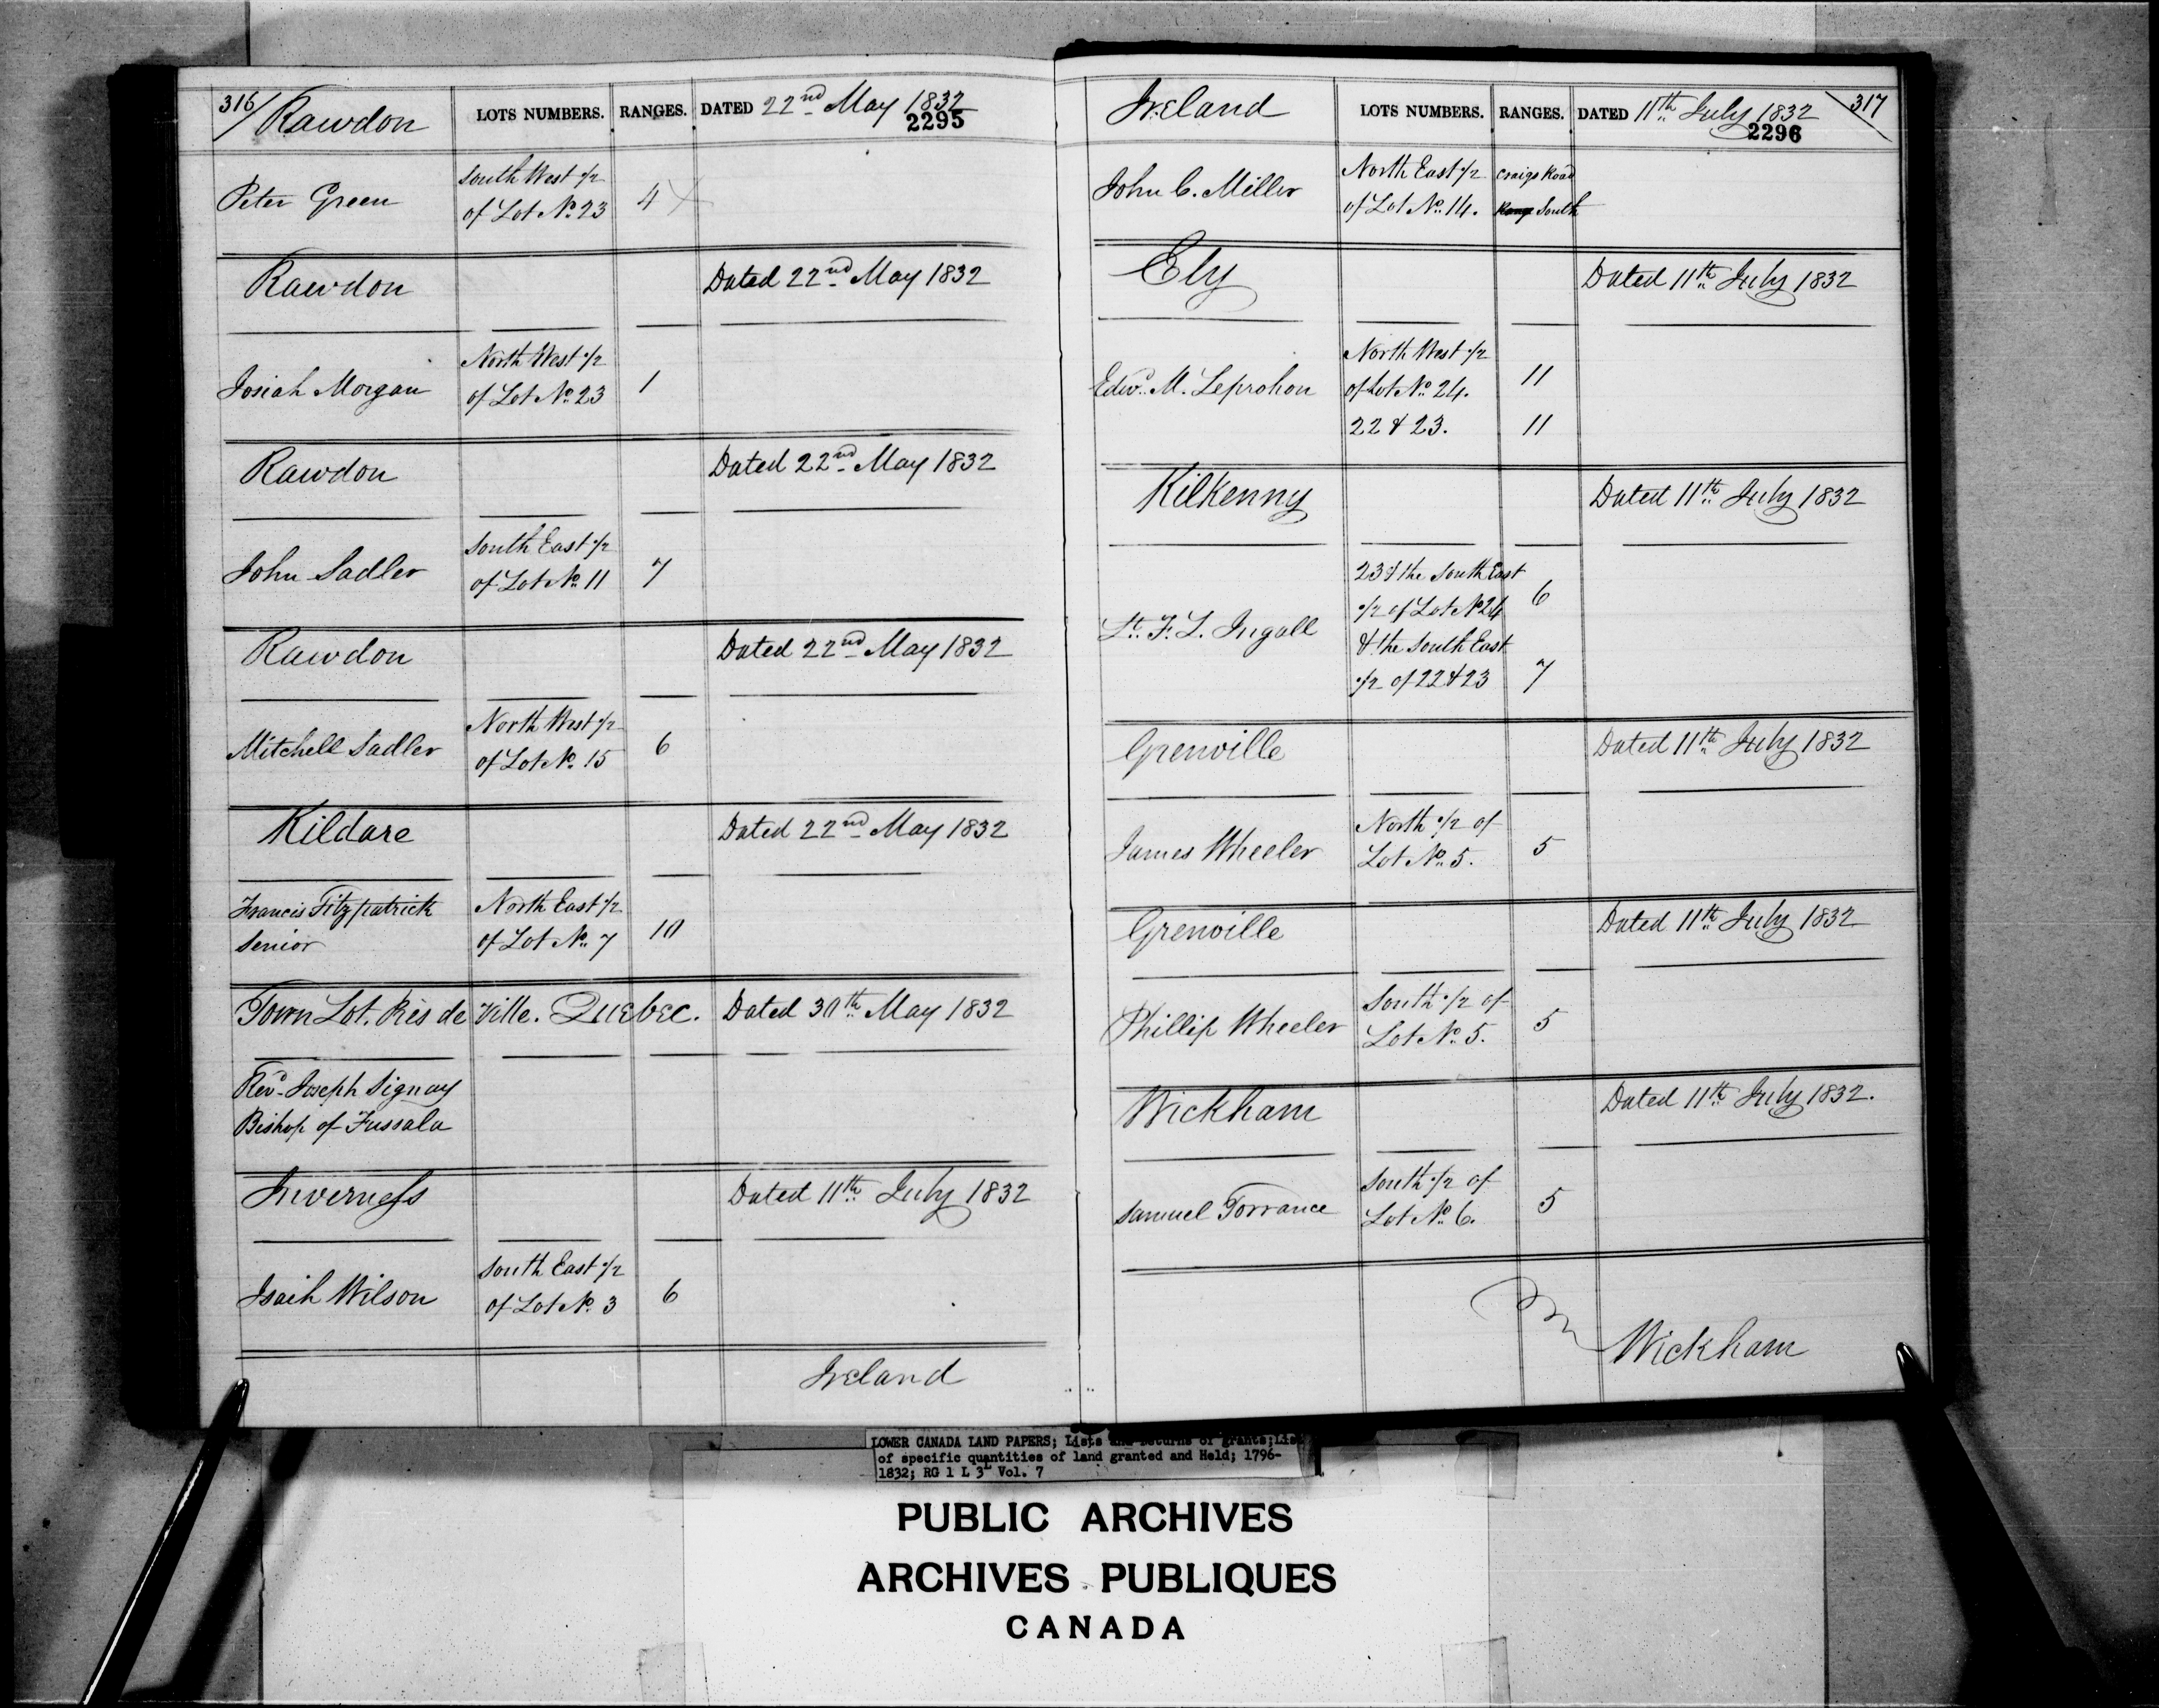 316/ Rawdon LOTS NUMBERS. RANGES. DATED 22nd May 1832
2295
Peter Green South West 1/2 4
of Lot No. 23
Rawdon Dated 22nd May 1832
Josiah Morgan North West 1/2 1
of Lot No. 23
Rawdon Dated 22nd May 1832
John Sadler South East 1/2 7
of Lot No. 11
Rawdon Dated 22nd May 1832
Mitchell Sadler North West 1/2 6
of Lot No. 15
Kildare Dated 22nd May 1832
Francis Fitzpatrick North East 1/2 10
Senior of Lot No. 7
Town Lot. Près de Ville. QUEBEC. Dated 30th May 1832
Revd. Joseph Signay
Bishop of Fussala
Inverness Dated 11th July 1832
Isaih Wilson South East 1/2 6
of Lot No. 3
Ireland
Ireland LOTS NUMBERS. RANGES. DATED 11th July 1832 317
2296
John C. Miller North East 1/2 Craigs Road
of Lot No. 14. Range South
Ely Dated 11th July 1832
Edwd. M. Leprohon North West 1/2
of Lot No. 24. 11
22 & 23. 11
Kilkenny Dated 11th July 1832
Lt. F. L. Ingall 23 & the South East
1/2 of Lot No. 24 6
& the South East
1/2 of 22 & 23 7
Grenville Dated 11th July 1832
James Wheeler North 1/2 of
Lot No. 5. 5
Grenville Dated 11th July 1832
Phillip Wheeler South 1/2 of
Lot No. 5. 5
Wickham Dated 11th July 1832.
Samuel Torrance South 1/2 of
Lot No. 6. 5
Wickham
LOWER CANADA LAND PAPERS; Lists and Returns of grants; Lis
of specific quantities of land granted and Held; 1796-
1832; RG 1 L 3L Vol. 7
PUBLIC ARCHIVES
ARCHIVES PUBLIQUES
CANADA